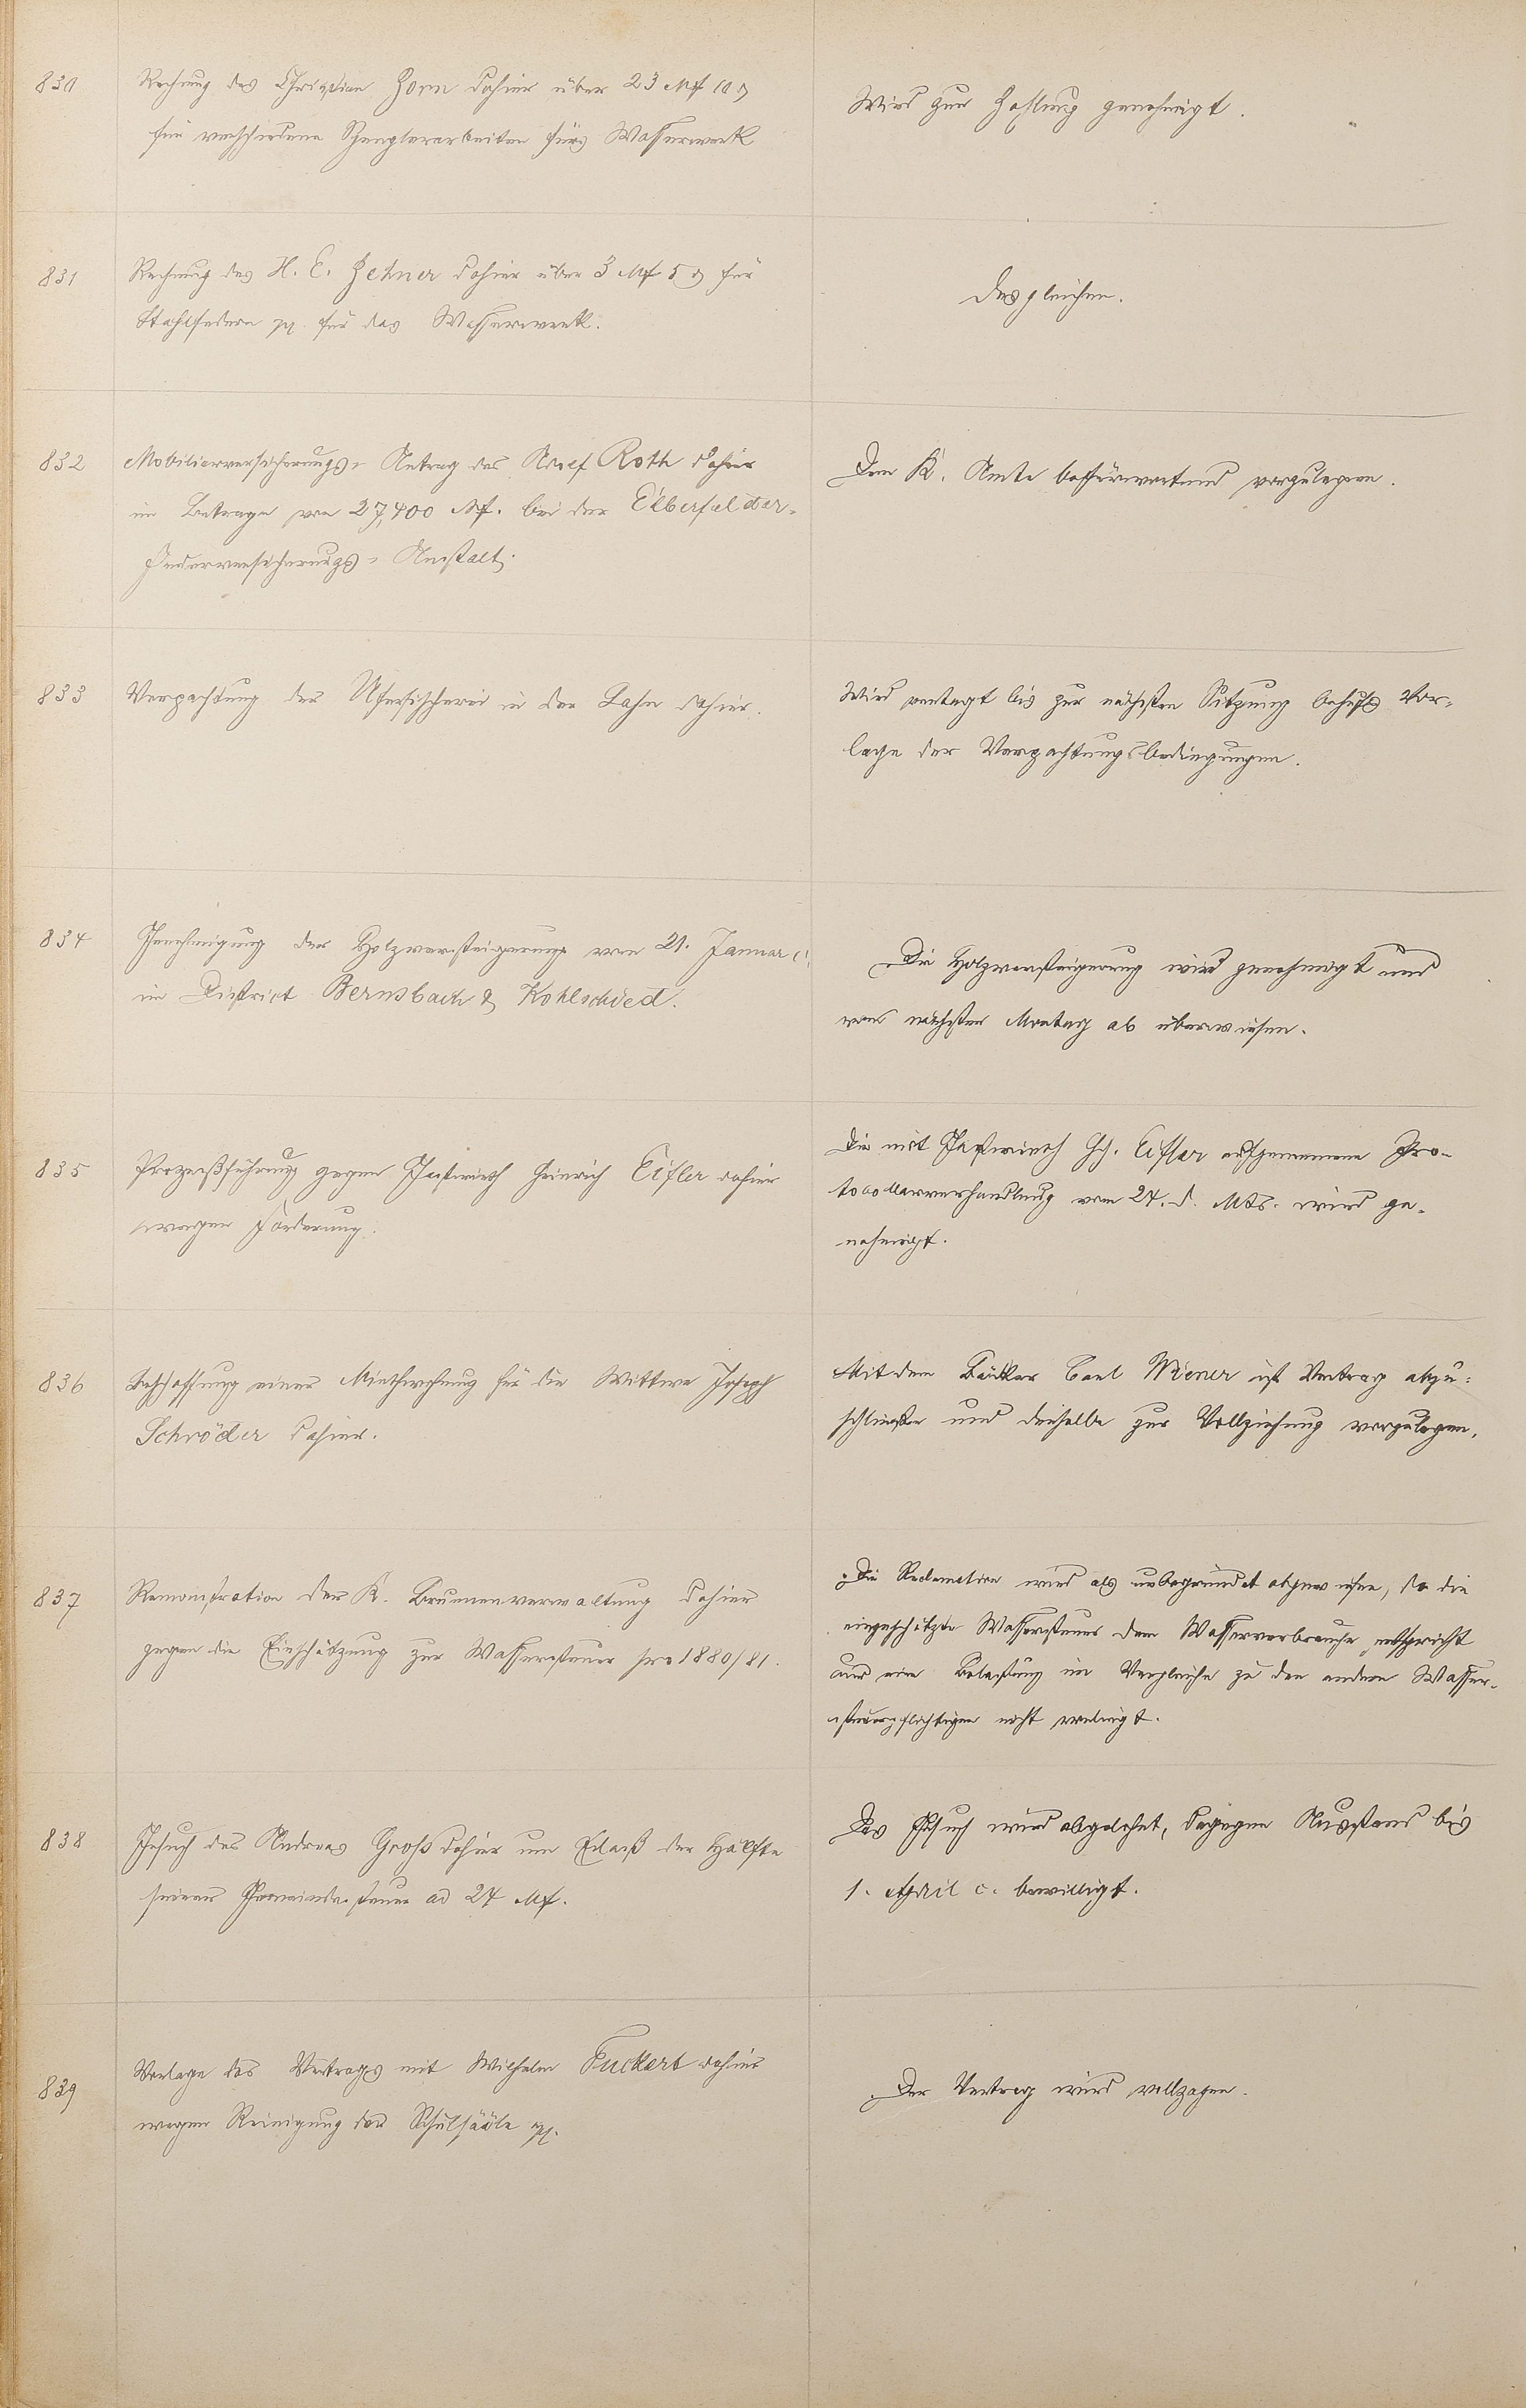 830
Rechnung des Christian Zorn dahier über 23 Mk 10 ₰
für verschiedene Spenglerarbeiten fürs Wasserwerk
Wird zur Zahlung genehmigt.
831
Rechnung des H. C. Zehner dahier über 3 Mk 5 ₰ für
Stahlfedern pp. für das Wasserwerk.
Desgleichen.
832
Mobiliarversicherungs- Antrag des Adolf Roth dahier
im Betrage von 27,400 Mk. bei der Elberfelder-
Feuerversicherungs- Anstalt.
Dem K. Amte befürwortend vorzulegen.
833
Verpachtung der Uferfischerei in der Lahn dahier.
Wird vertagt bis zur nächsten Sitzung behufs Vor-
lage der Verpachtungsbedingungen.
834
Genehmigung der Holzversteigerung vom 21. Januar c.
im District Bernsbach & Kohlscheed.
Die Holzversteigerung wird genehmigt und
vom nächsten Montag ab überwiesen.
835
Prozeßführung gegen Gastwirth Heinrich Eifler dahier
wegen Forderung.
Die mit Gastwirth Hch. Eifler aufgenommene Pro-
tocollarverhandlung vom 24. d. Mts. wird ge-
nehmigt.
836
Beschaffung einer Miethwohnung für die Wittwe Joseph
Schröder dahier.
Mit dem Bäcker Carl Wiener ist Vertrag abzu-
schließen und derselbe zur Vollziehung vorzulegen.
837
Remonstration der K. Brunnenverwaltung dahier
gegen die Einschätzung zur Wassersteuer pro 1880/81.
Die Reclamation wird als unbegründet abgewiesen, da die
eingeschätzte Wassersteuer dem Wasserverbrauche entspricht
und eine Belastung im Vergleiche zu den andern Wasser-
steuerpflichtigen nicht vorliegt.
838
Gesuch des Andreas Groß dahier um Erlaß der Hälfte
seiner Gemeindesteuer ad 24 Mk.
Das Gesuch wird abgelehnt, dagegen Ausstand bis
1. April c. bewilligt.
839
Vorlage des Vertrags mit Wilhelm Fuckert dahier
wegen Reinigung der Schulsääle pp.
Der Vertrag wird vollzogen.